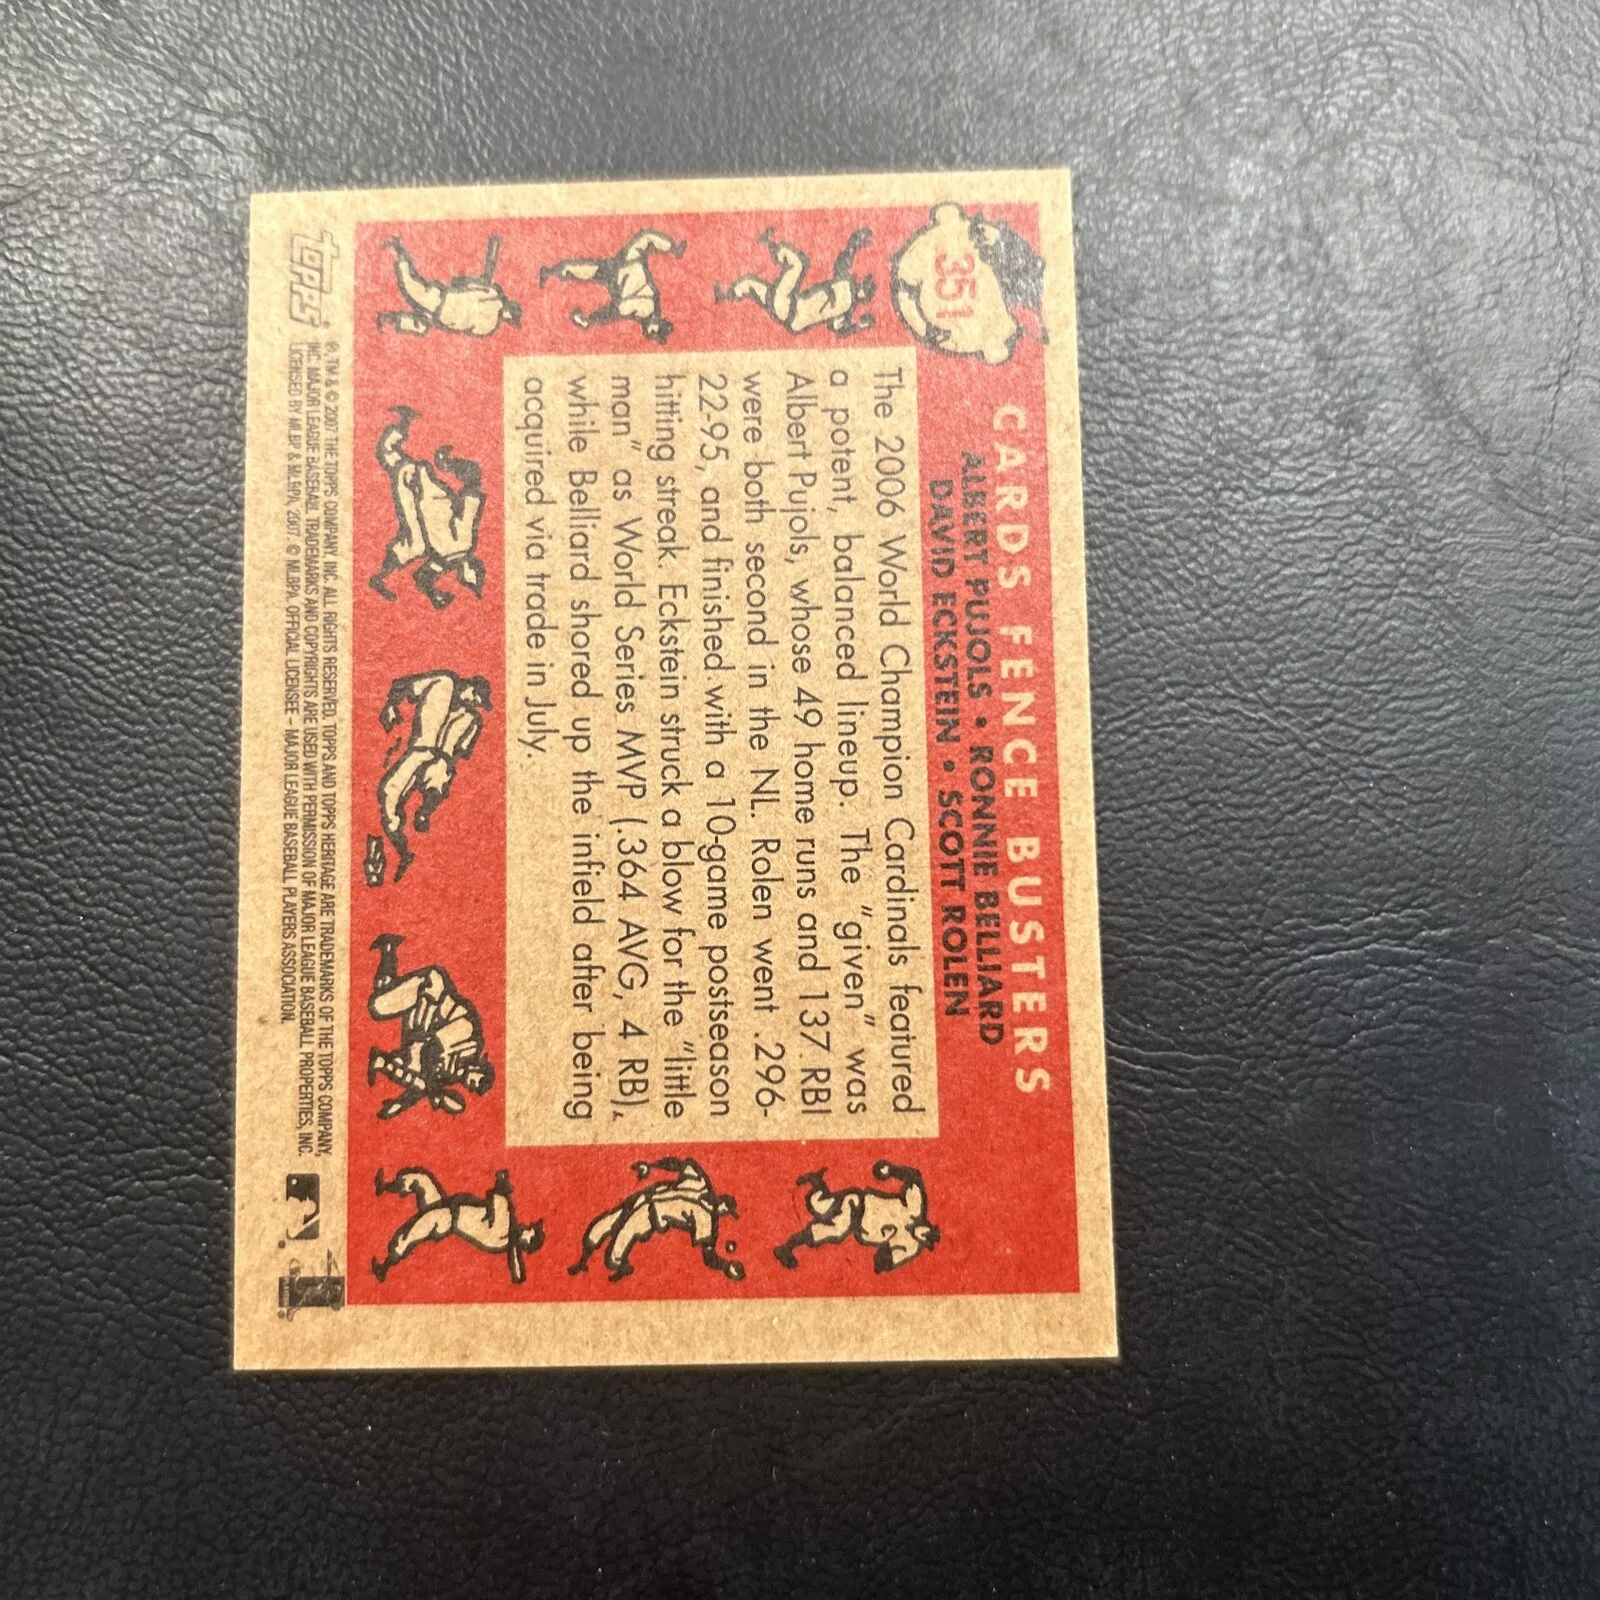 351
CARDS FENCE BUSTERS
ALBERT PUJOLS • RONNIE BELLIARD
DAVID ECKSTEIN • SCOTT ROLEN
The 2006 World Champion Cardinals featured
a potent, balanced lineup. The "given" was
Albert Pujols, whose 49 home runs and 137 RBI
were both second in the NL. Rolen went .296-
22-95, and finished with a 10-game postseason
hitting streak. Eckstein struck a blow for the "little
man" as World Series MVP (.364 AVG, 4 RB),
while Belliard shored up the infield after being
acquired via trade in July.
topps®
®, TM & © 2007 THE TOPPS COMPANY, INC. ALL RIGHTS RESERVED. TOPPS AND TOPPS HERITAGE ARE TRADEMARKS OF THE TOPPS COMPANY,
INC. MAJOR LEAGUE BASEBALL TRADEMARKS AND COPYRIGHTS ARE USED WITH PERMISSION OF MAJOR LEAGUE BASEBALL PROPERTIES, INC.
LICENSED BY MLBP & MLBPA, 2007. © MLBPA. OFFICIAL LICENSEE – MAJOR LEAGUE BASEBALL PLAYERS ASSOCIATION.